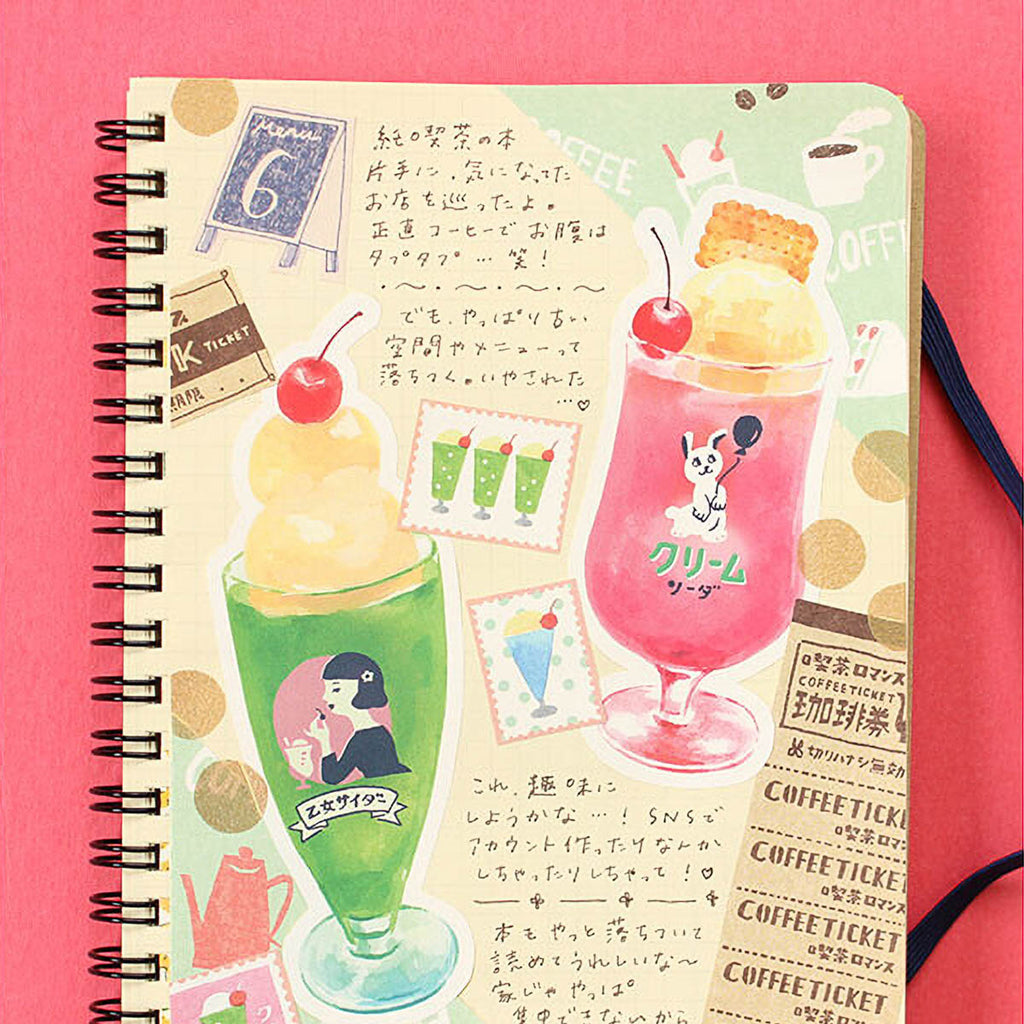 Menu
6
純喫茶の本
片手に、気になってた
お店を巡ったよ。
正直コーヒーでお腹は
タプタプ…笑!
でも、やっぱり古い
空間やメニューって
落ちつく。いやされた
…♡
COFFEE
COFFE
TICKET
クリーム
ソーダ
乙女サイダー
喫茶ロマンス
COFFEETICKET
珈琲券
切リハナシ無効
COFFEETICKE
喫茶ロマン
COFFEETICKET
喫茶ロマンス
COFFEETICKET
喫茶ロマンス
COFFEETICKET
これ、趣味に
しようかな…!SNSで
アカウント作ったりなんか
しちゃったりしちゃって!♡
本もやっと落ちついて
読めてうれしいな〜
家じゃやっぱ
集中できないから